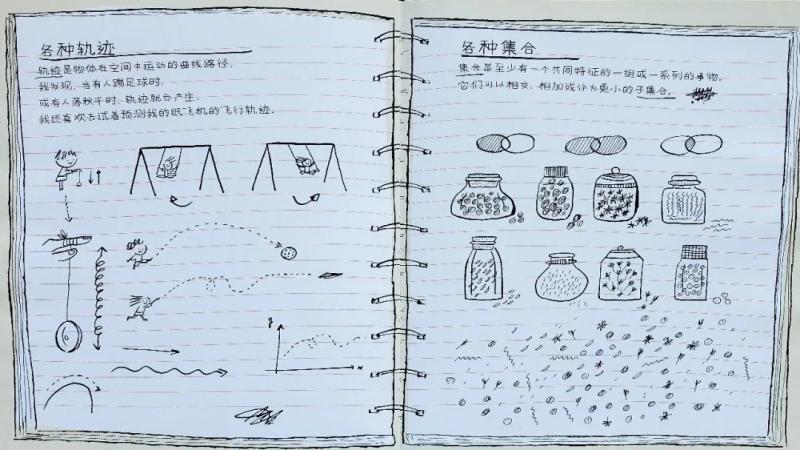 各种轨迹
轨迹是物体在空间中运动的曲线路径.
我发现,当有人踢足球时,
或有人荡秋千时,轨迹就会产生.
我还喜欢去试着预测我的纸飞机的飞行轨迹.
y
x
各种集合
集合是至少有一个共同特征的一组或一系列的事物.
它们可以相交、相加或分为更小的子集合.